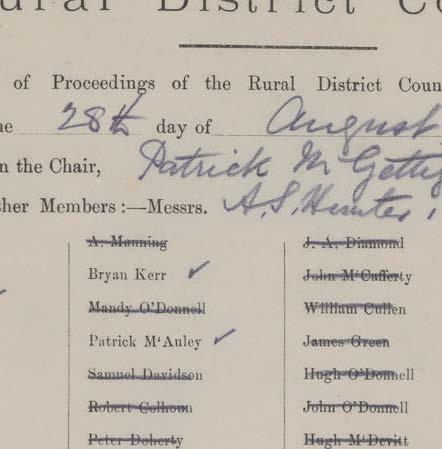 Rural District Co
of Proceedings of the Rural District Coun
28th day of August,
n the Chair, Patrick McGetti
ther Members :—Messrs. A. S. Hunter,
A. Manning
Bryan Kerr ✓
Mandy O'Donnell
Patrick M‘Auley ✓
Samuel Davidson
Robert Colhoun
Peter Doherty
J. A. Diamond
John M‘Cafferty
William Cullen
James Green
Hugh O'Donnell
John O'Donnell
Hugh M‘Devitt